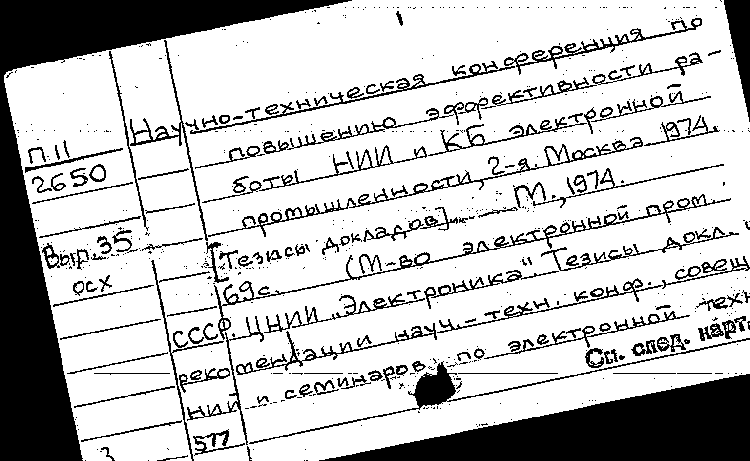 Научно-техническая конференция по
повышению эффективности ра-
боты НИИ и КБ электронной
промышленности, 2-я. Москва. 1974.
[Тезисы докладов]. — М., 1974.
69с. (М-во электронной пром.
СССР. ЦНИИ „Электроника". Тезисы докл. и
рекомендации науч.-техн. конф., совещ
ний и семинаров по электронной техн
См. след. карт.
П.11
2650
Вып.35
осх
577